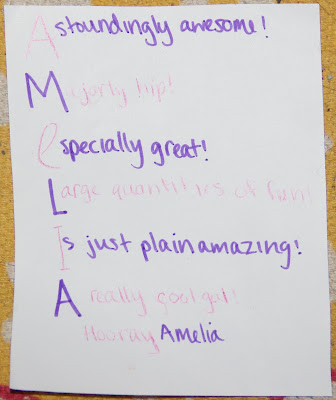 Astoundingly awesome!
Majorly hip!
especially great!
Large quantities of fun!
Is just plain amazing!
A really cool gal!
Hooray Amelia